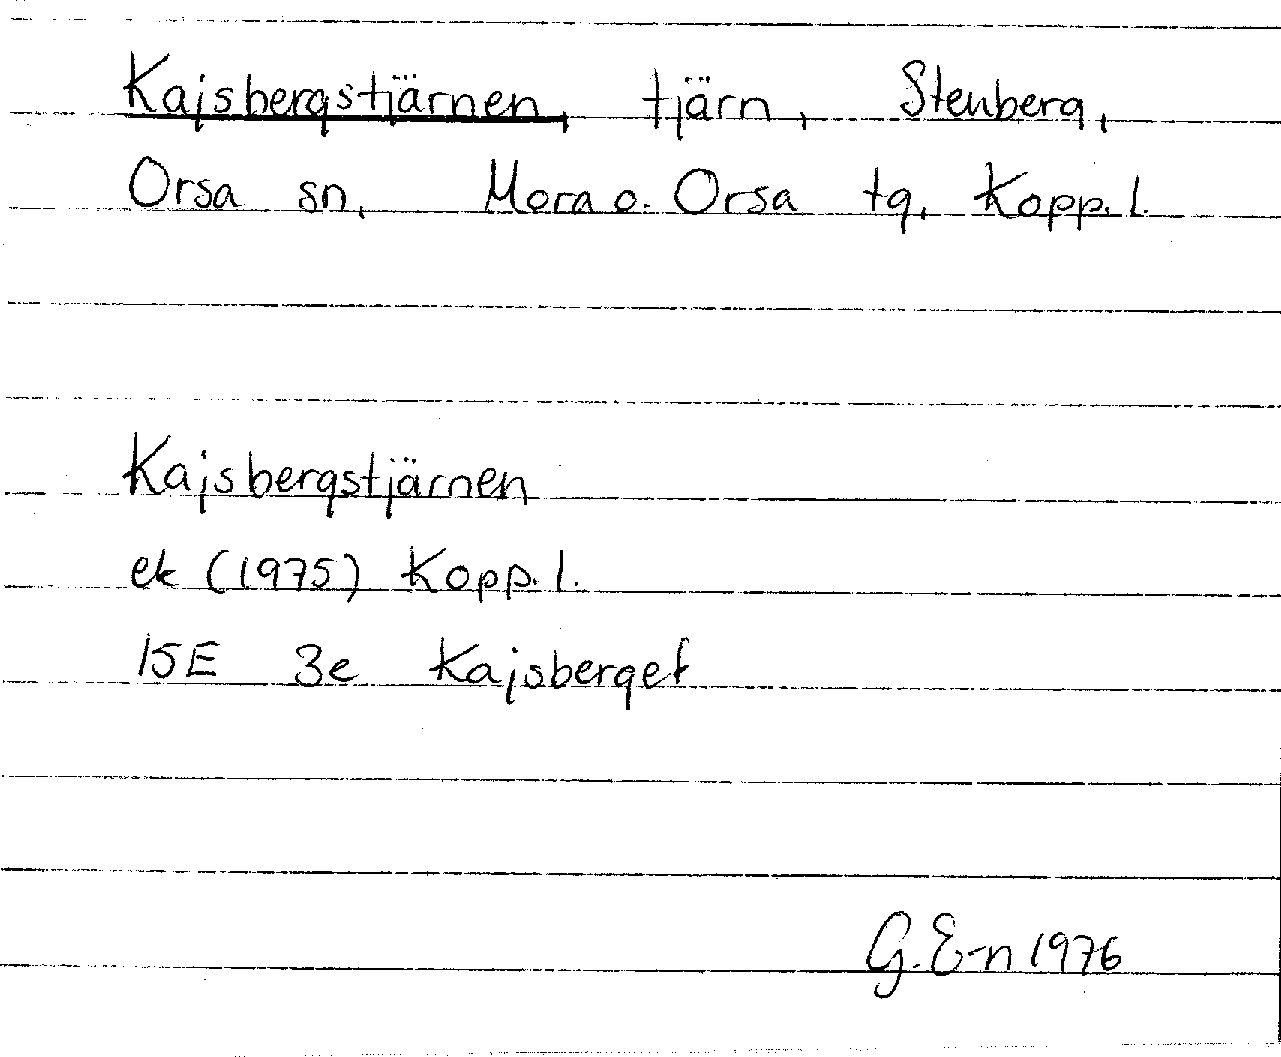 Kajsbergstjärnen, tjärn, Stenberg,
Orsa sn, Mora o. Orsa tg, Kopp. l.
Kajsbergstjärnen
ek (1975) Kopp. l.
15E 3e Kajsberget
G. E-n 1976